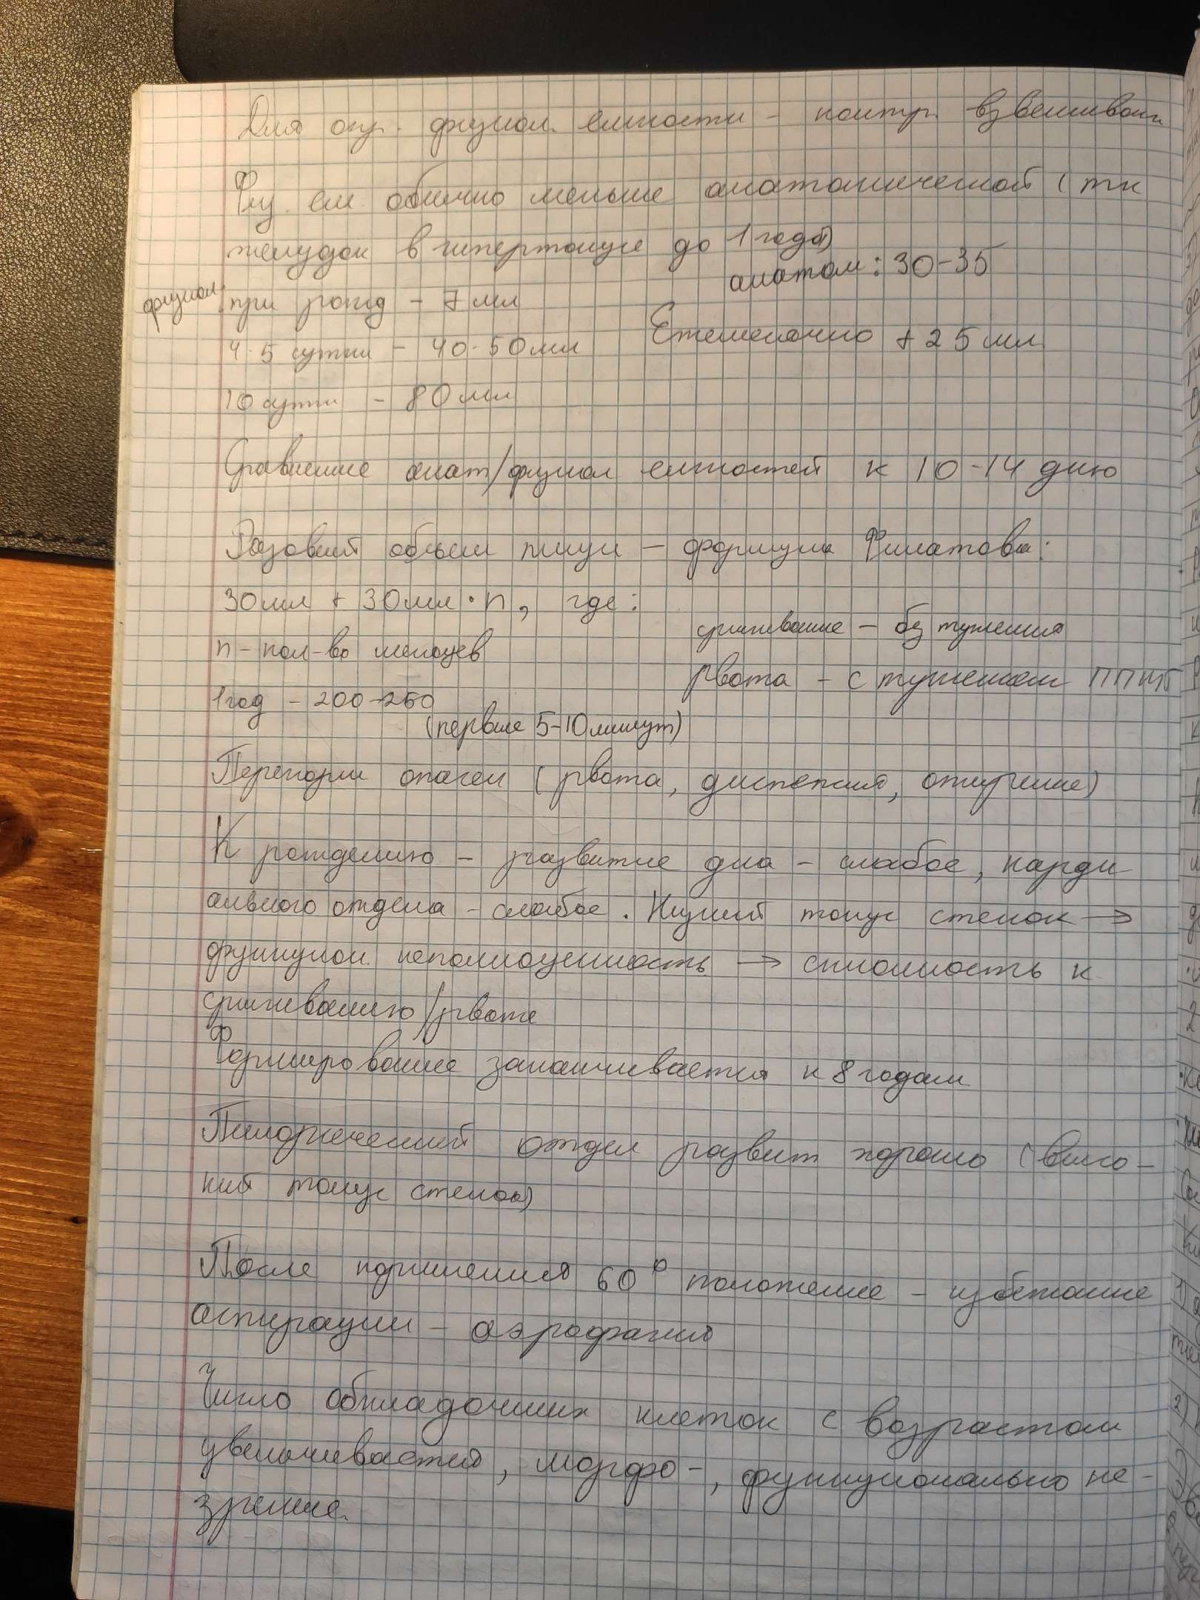 Для опр. физиол. емкости – контр. взвешивани
Физ. ем. обычно меньше анатомической (тк
желудок в гипертонусе до 1 года)
анатом: 30-35
физиол: при рожд – 7 мл
4-5 сутки – 40-50 мл
Ежемесячно + 25 мл
10 сутки – 80 мл
Сравнение анат/физиол емкостей к 10-14 дню
Разовый объем пищи – формула Филатова:
30 мл + 30 мл · n, где:
n – кол-во месяцев
срыгивание – без тужения
рвота – с тужением
1 год – 200-250
(первые 5-10 минут)
Перекорм опасен (рвота, диспепсия, ожирение)
К рождению – развитие дна – слабое, карди
ального отдела – слабое. Низкий тонус стенок →
функцион. неполноценность → склонность к
срыгиванию/рвоте
Формирование заканчивается к 8 годам
Пилорический отдел развит хорошо (высо-
кий тонус стенок)
После кормления 60° положение – избежание
аспирации – аэрофагия
Число обкладочных клеток с возрастом
увеличивается, морфо-, функционально не-
зрелые.